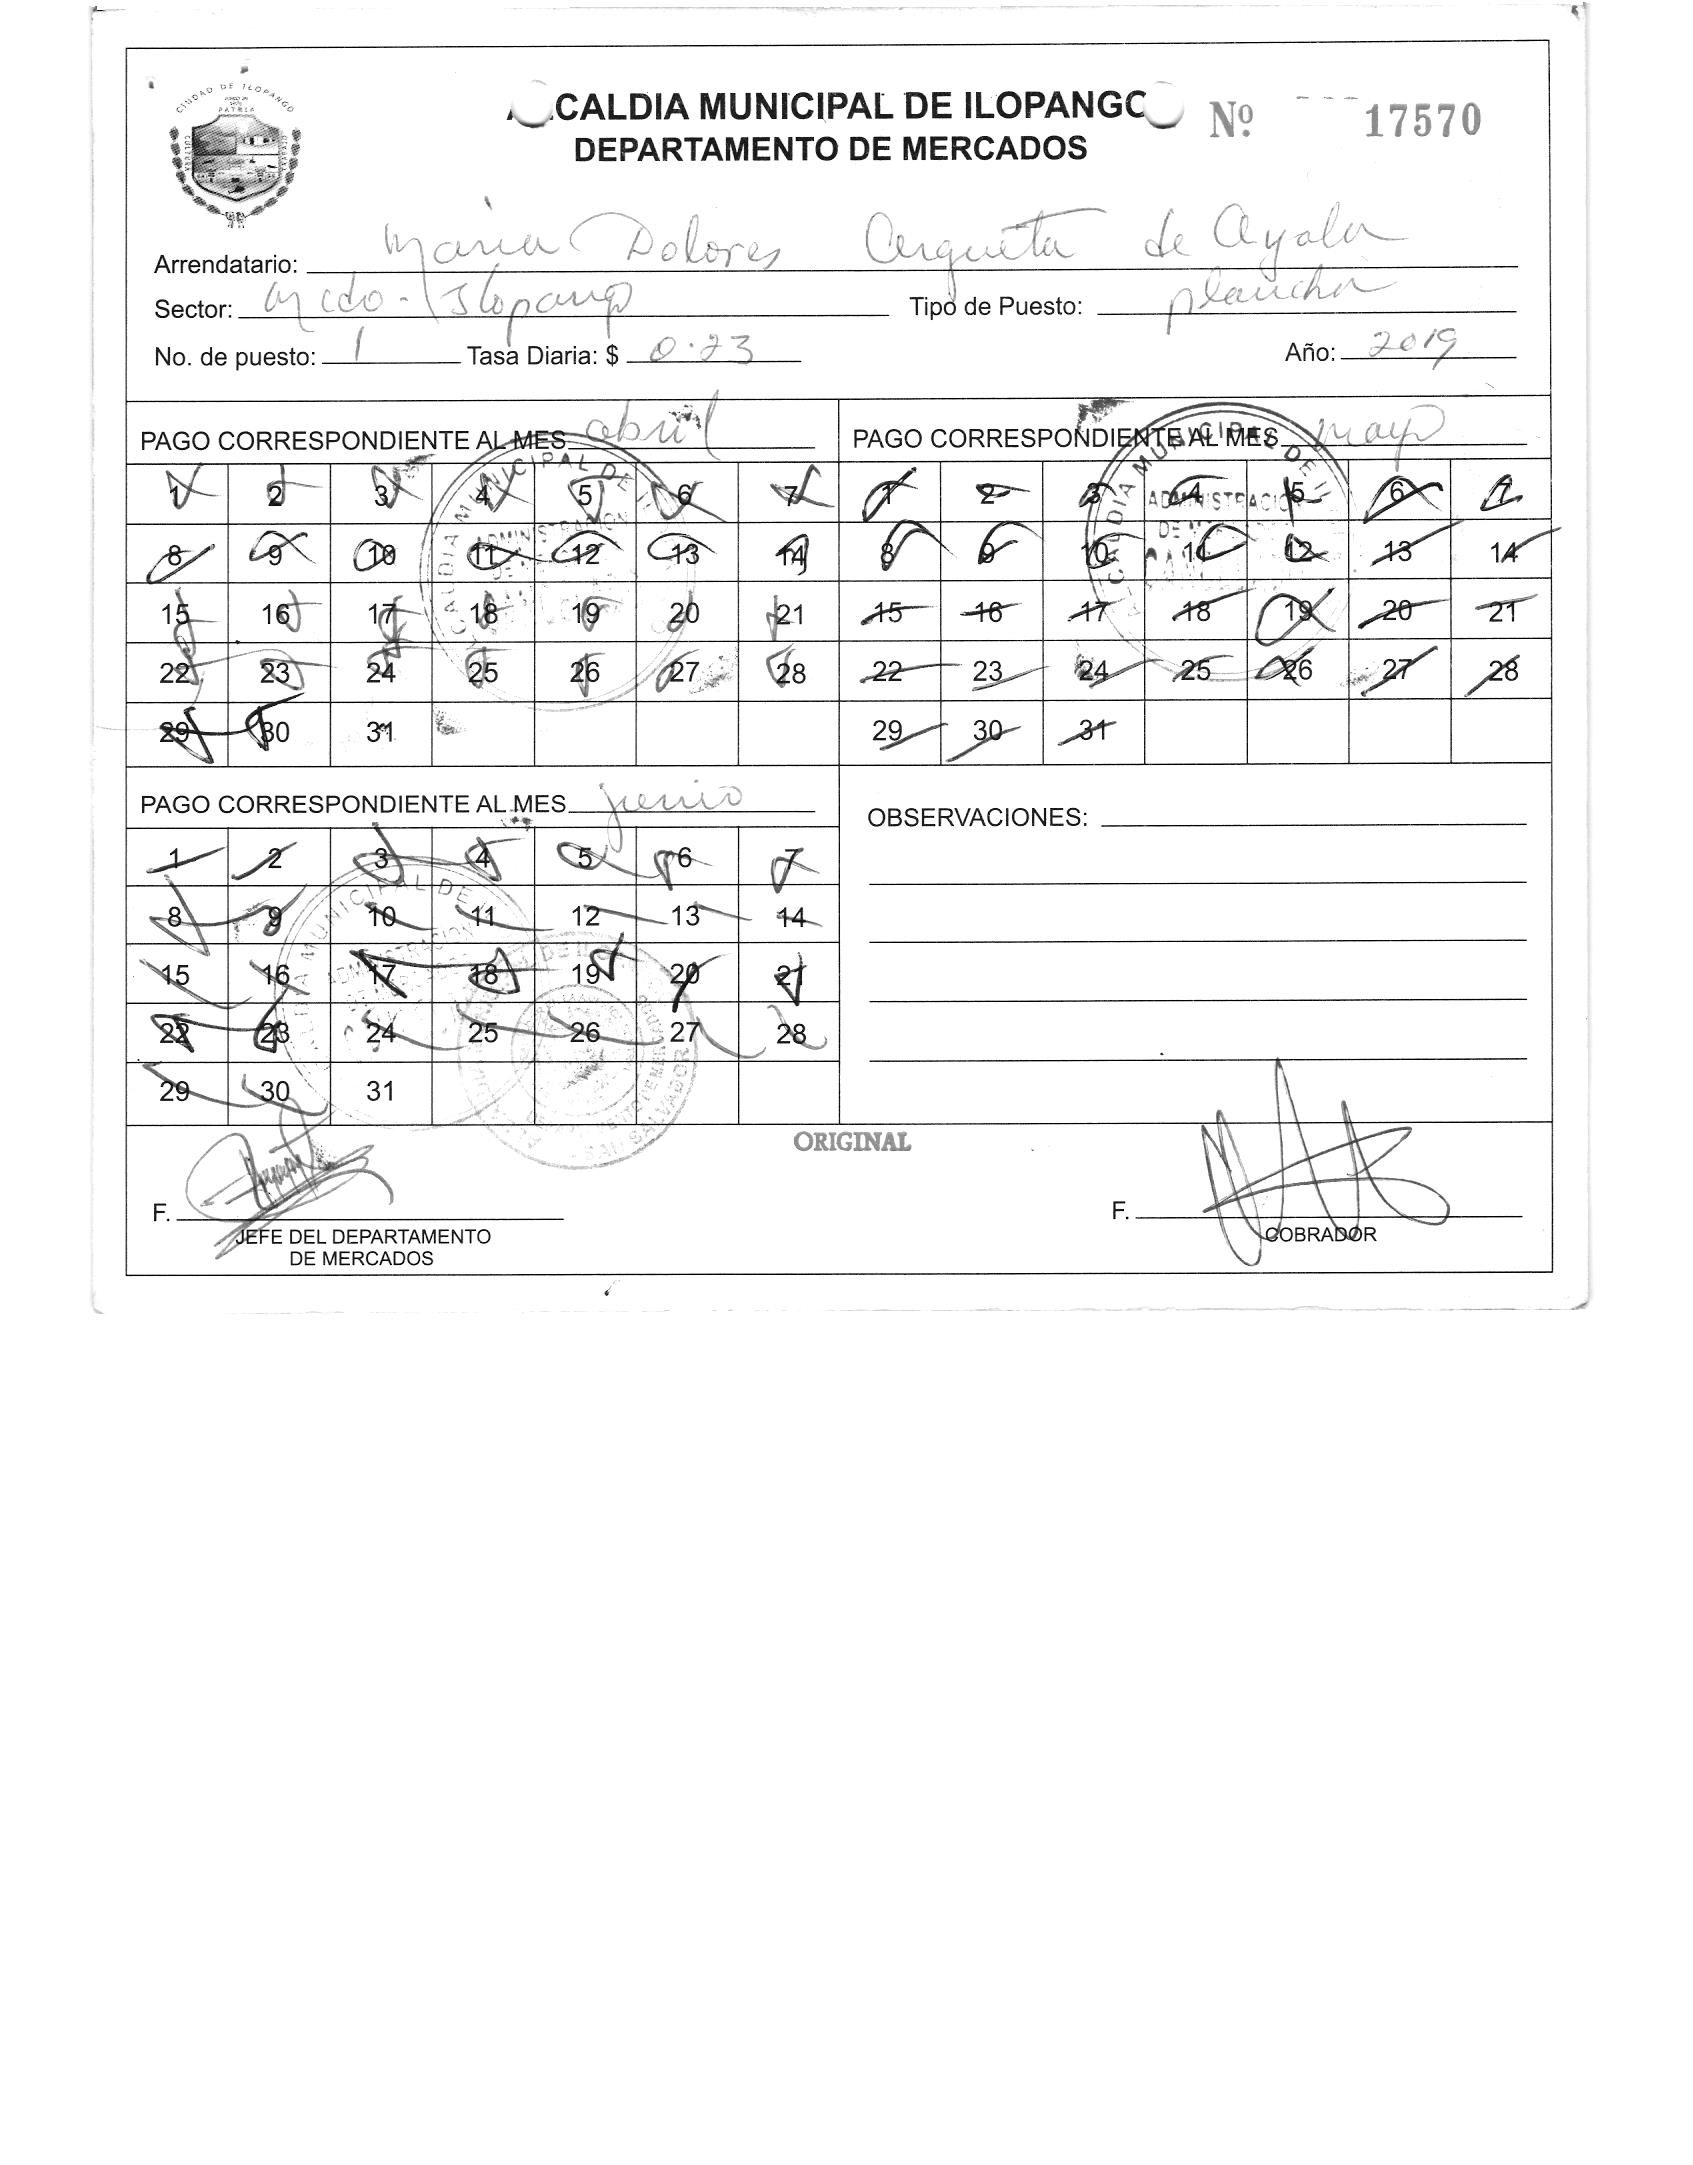 CIUDAD DE ILOPANGO
ALCALDIA MUNICIPAL DE ILOPANGO
Nº 17570
DEPARTAMENTO DE MERCADOS
Arrendatario: Maria Dolores Argueta de Ayala
Sector: Mcdo. Ilopango Tipo de Puesto: plancha
No. de puesto: 1 Tasa Diaria: $ 0.23 Año: 2019
PAGO CORRESPONDIENTE AL MES abril
1 2 3 4 5 6 7
8 9 10 11 12 13 14
15 16 17 18 19 20 21
22 23 24 25 26 27 28
29 30 31
PAGO CORRESPONDIENTE AL MES mayo
1 2 3 4 5 6 7
8 9 10 11 12 13 14
15 16 17 18 19 20 21
22 23 24 25 26 27 28
29 30 31
PAGO CORRESPONDIENTE AL MES junio
1 2 3 4 5 6 7
8 9 10 11 12 13 14
15 16 17 18 19 20 21
22 23 24 25 26 27 28
29 30 31
OBSERVACIONES:
ORIGINAL
F.
JEFE DEL DEPARTAMENTO
DE MERCADOS
F.
COBRADOR